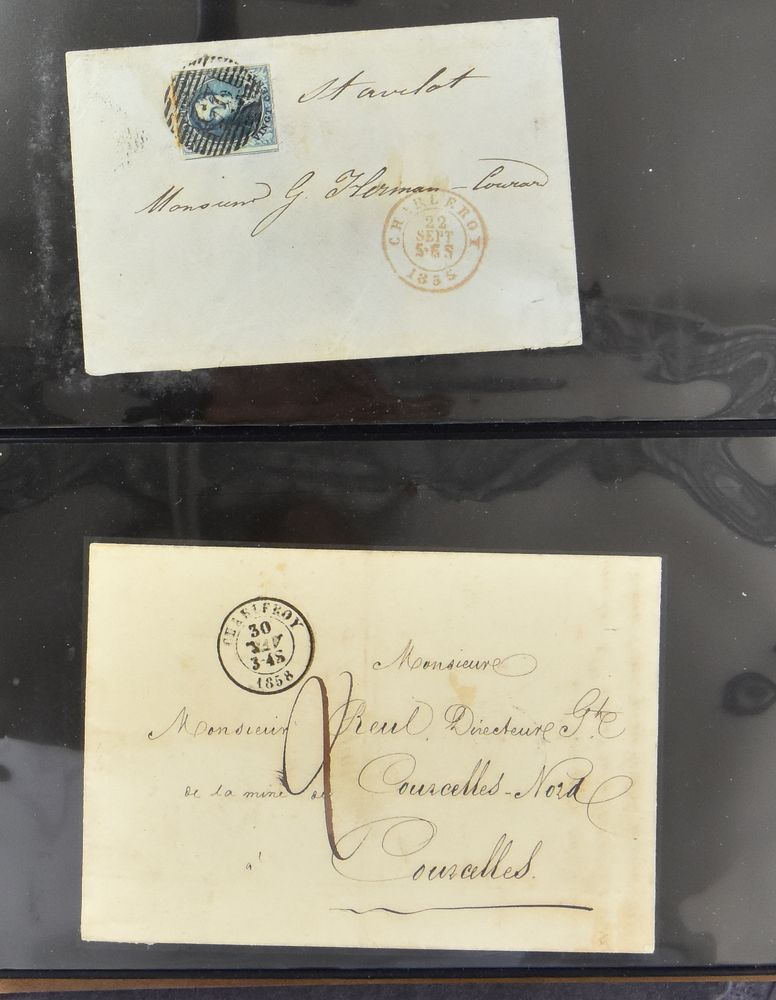 VINGT
Stavelot
Monsieur G. Herman-Courard
CHARLEROY
22
SEPT
1858
CHARLEROY
30
3-4S
1858
Monsieur
Monsieur Reul, Directeur Gt.
de la mine de Courcelles-Nord
à
Courcelles.